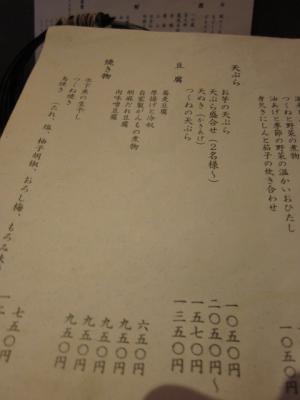 つくねと野菜の煮物
油あげと季節の野菜の温かいおひたし
身欠きにしんと茄子の炊き合わせ
一〇五〇円
天ぷら
お芋の天ぷら
一〇五〇円
天ぷら盛合せ(2名様〜)
二〇五〇円〜
天ぬき(かきあげ)
一五七〇円
つくねの天ぷら
一三五〇円
豆腐
蕎麦豆腐
六五〇円
厚揚げと冷奴
九五〇円
自家製がんもの煮物
九五〇円
胡麻だれ豆腐
九五〇円
肉味噌豆腐
九五〇円
焼き物
生干し
つくね焼き
鳥焼き
(たれ、塩、柚子胡椒、おろし梅、もろみ
七五〇円